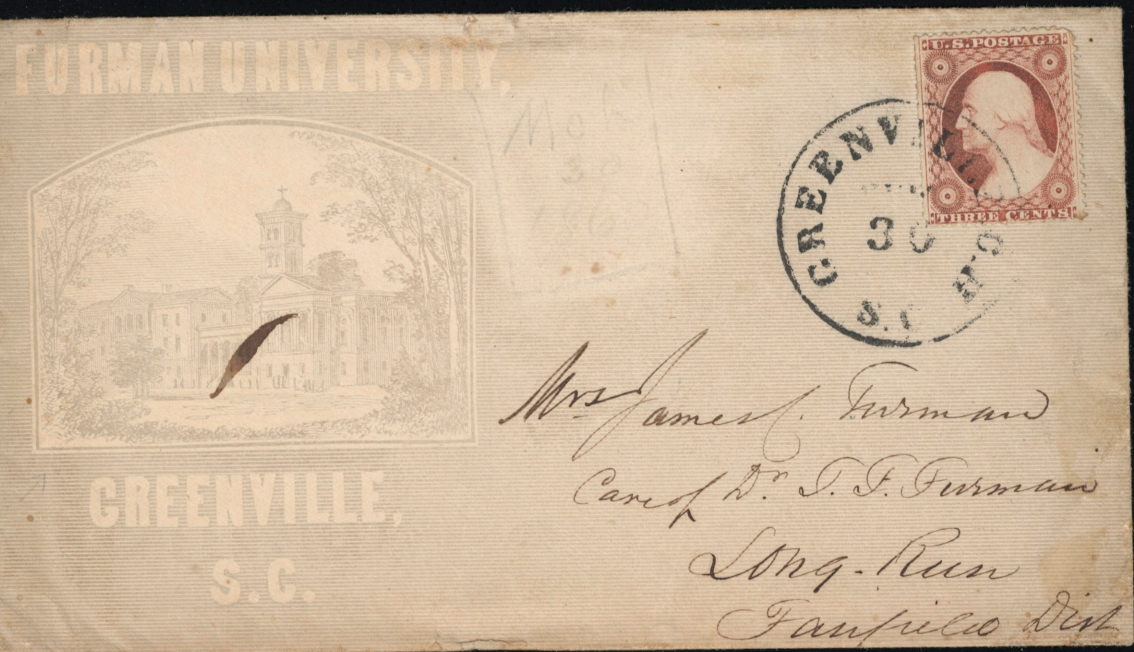 FURMAN UNIVERSITY,
GREENVILLE,
S.C.
U.S. POSTAGE
THREE CENTS
GREENVILLE C.H.
30
S.C
Mrs James C. Furman
Care of Dr. T. F. Furman
Long-Run
Fairfield Dist